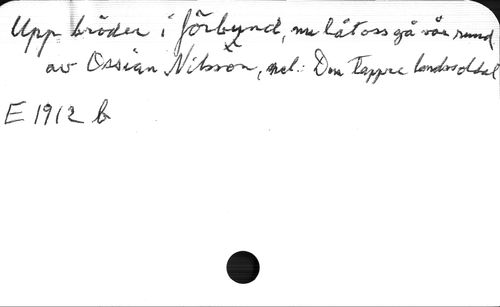 Upp bröder i förbund, nu låt oss gå vår rund
av Ossian Nilsson, mel.: Den Tappre landssoldat
E 1912 b